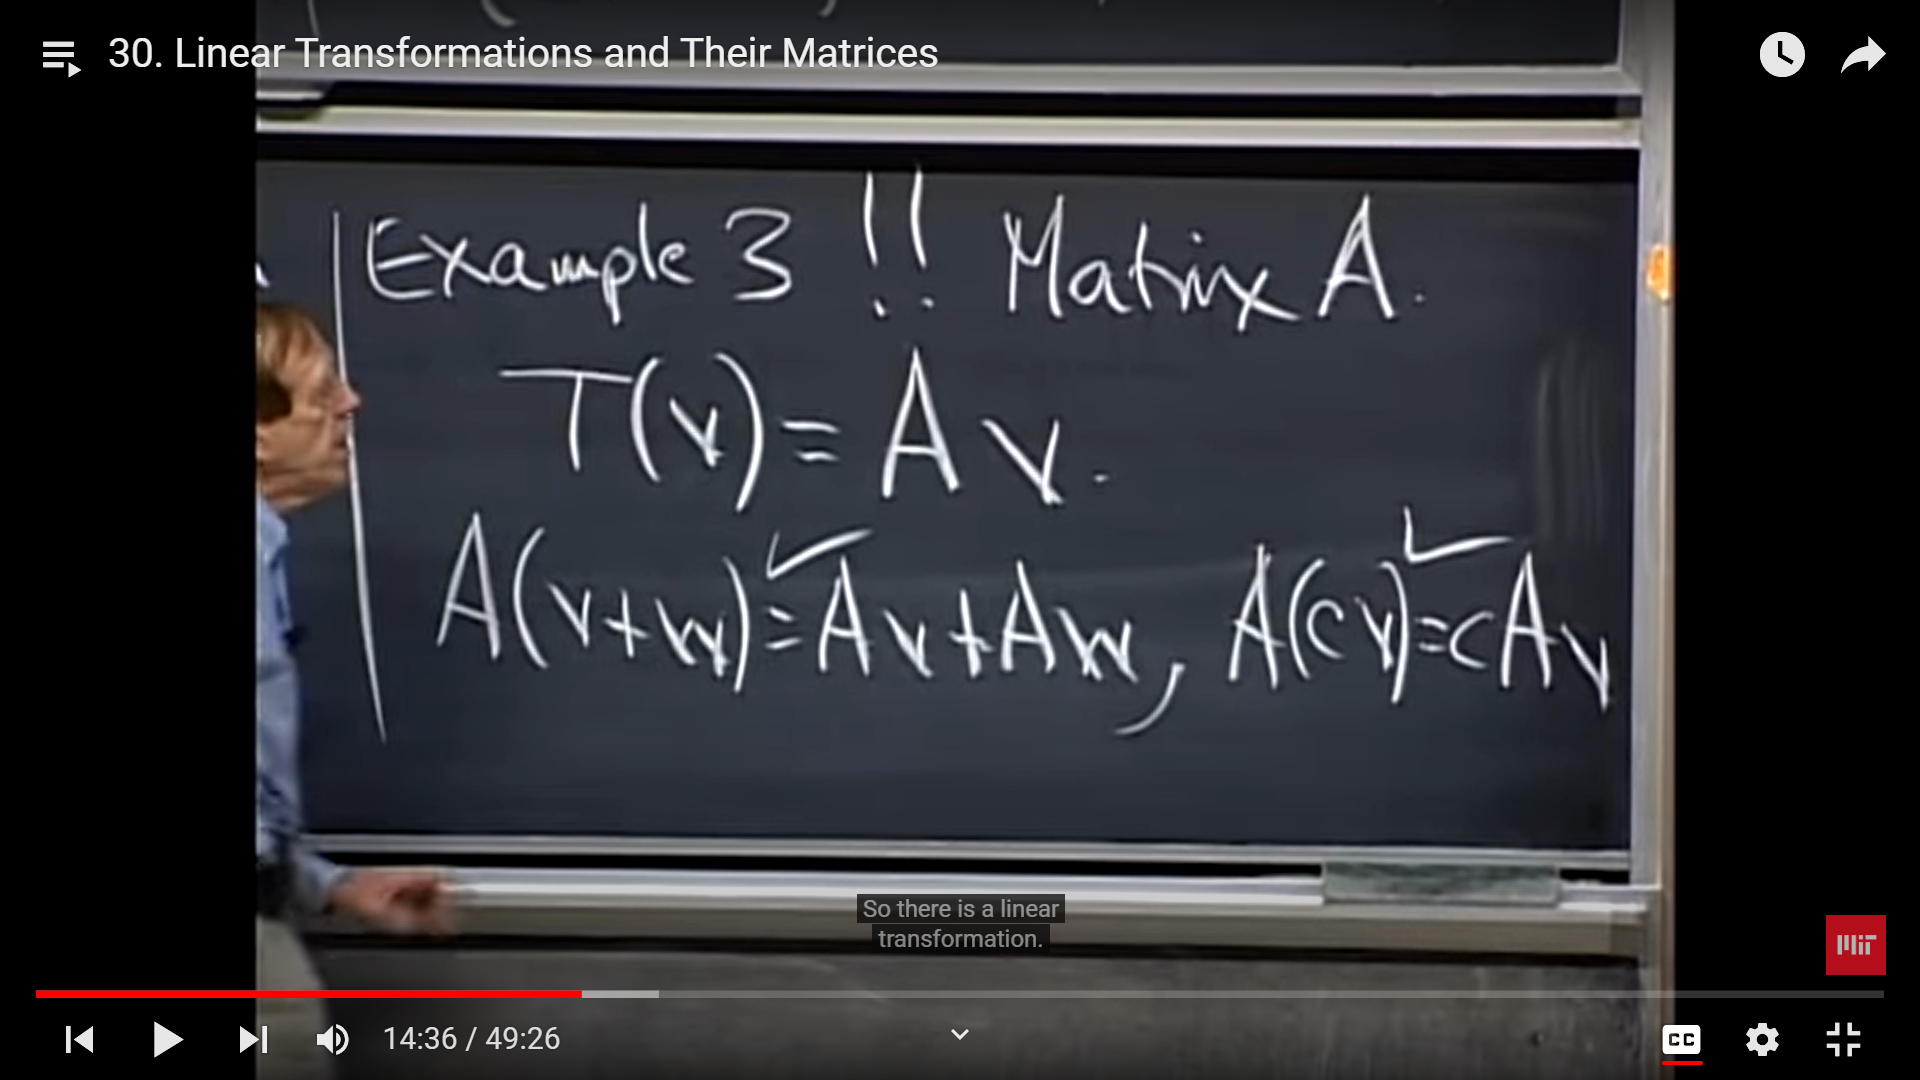 30. Linear Transformations and Their Matrices
Example 3 !! Matrix A.
T(v) = Av.
A(v+w) =✓ Av+Aw, A(cv) =✓ cAv
So there is a linear
transformation.
MIT
14:36 / 49:26
CC